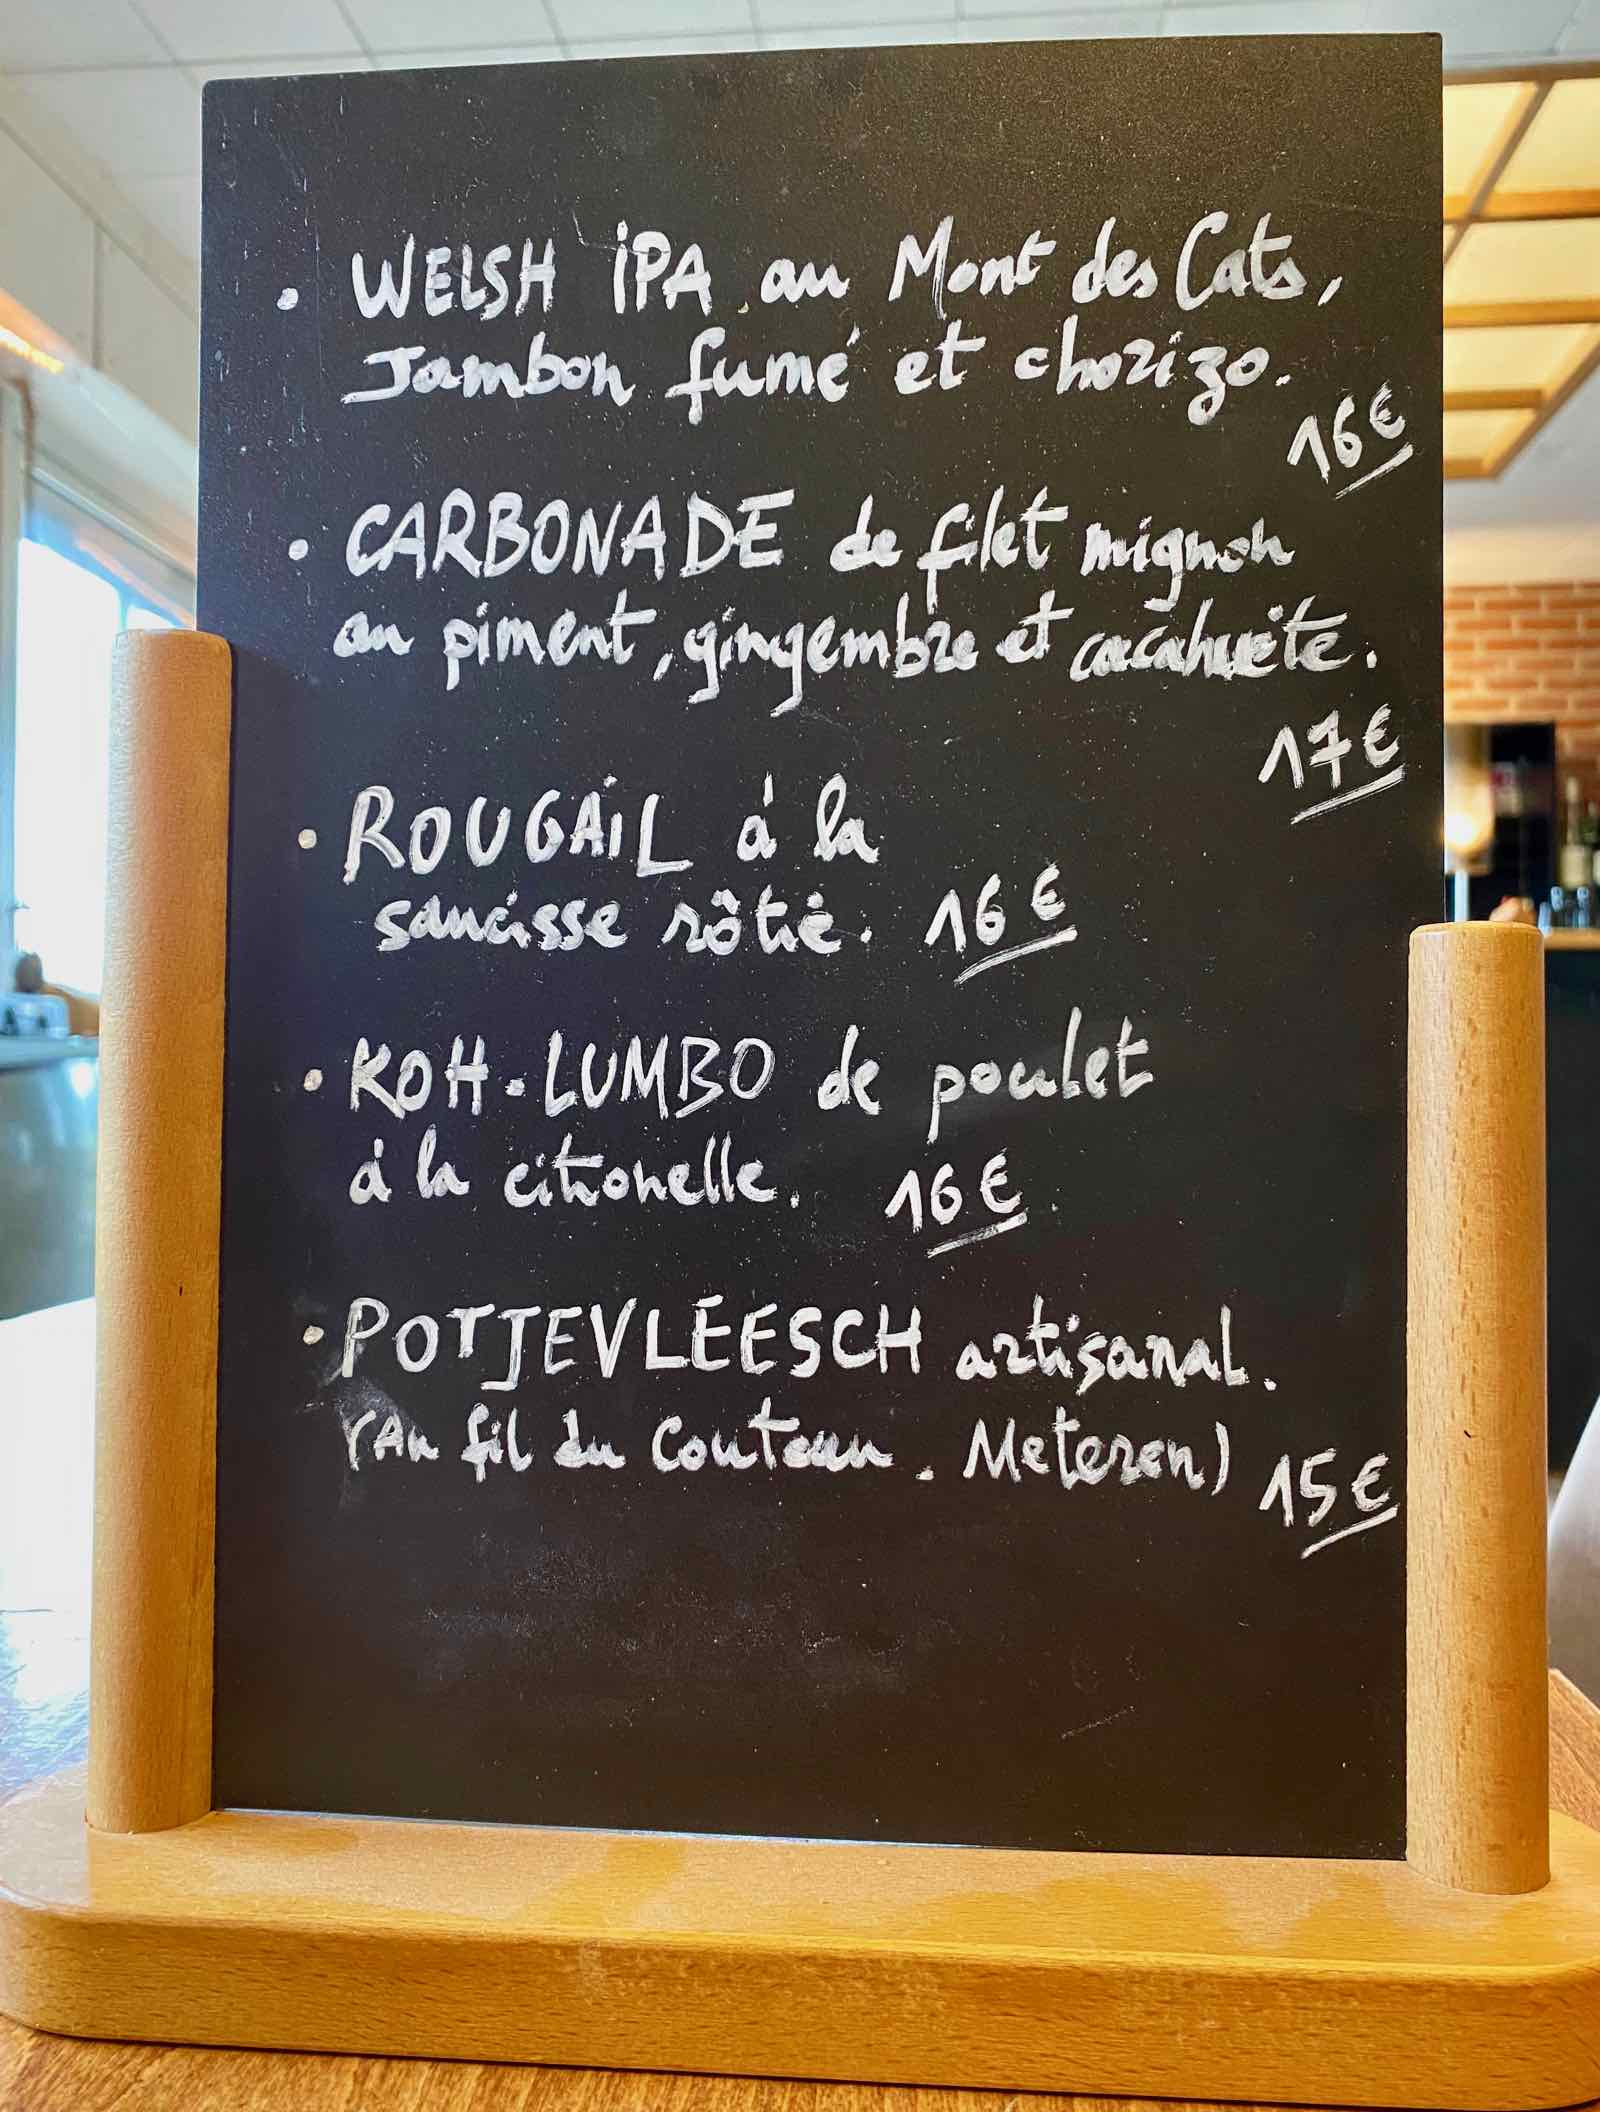 • WELSH IPA au Mont des Cats,
Jambon fumé et chorizo.
16€
• CARBONADE de filet mignon
au piment, gingembre et cacahuète.
17€
• ROUGAIL à la
saucisse rôtie. 16€
• KOH-LUMBO de poulet
à la citronelle. 16€
• POTJEVLEESCH artisanal.
(Au fil du Couteau. Meteren) 15€